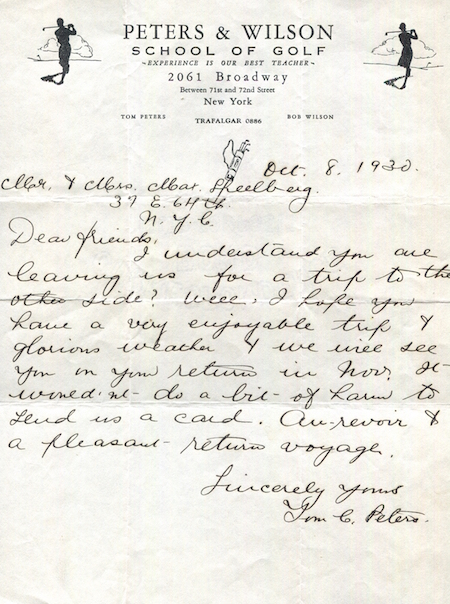 PETERS & WILSON
SCHOOL OF GOLF
~EXPERIENCE IS OUR BEST TEACHER~
2061 Broadway
Between 71st and 72nd Street
New York
TOM PETERS TRAFALGAR 0886 BOB WILSON
Oct. 8, 1930.
Mr. & Mrs. Max. Speelberg.
37 E. 64th.
N.Y.C.
Dear friends,
I understand you are
leaving us for a trip to the
other side? Well, I hope you
have a very enjoyable trip &
glorious weather & we will see
you on your return in Nov. It
would'nt do a bit of harm to
send us a card. Au-revoir &
a pleasant return voyage.
Sincerely yours
Tom C. Peters.